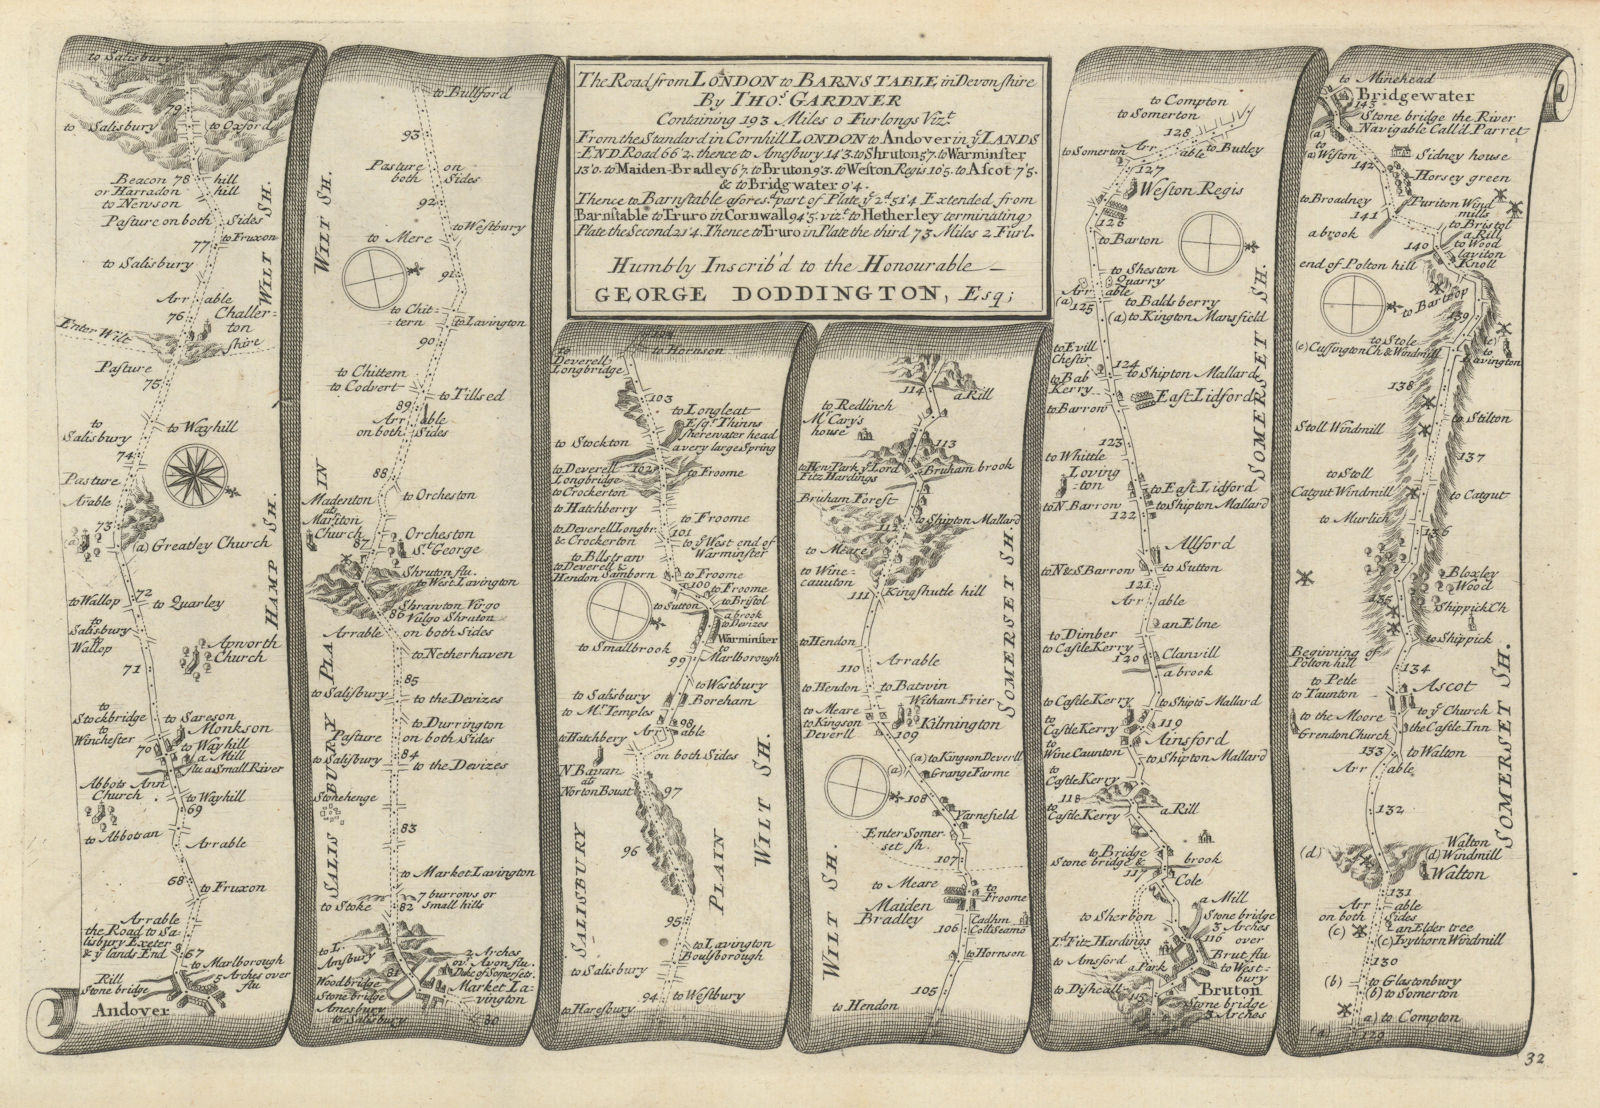 The Road from LONDON to BARNSTABLE in Devonshire
By THOS. GARDNER
Containing 193 Miles 0 Furlongs Vizt.
From the Standard in Cornhill LONDON to Andover in ye LANDS
END Road 66'2. thence to Amesbury 14'3. to Shruton 5'7. to Warminster
13'0. to Maiden-Bradley 6'7. to Bruton 9'3. to Weston Regis 10'5. to Ascot 7'5.
& to Bridgwater 9'4.
Thence to Barnstable aforesd. part of Plate ye 2d. 51'4 Extended from
Barnstable to Truro in Cornwall 94'5. vizt. to Hetherley terminating
Plate the Second 21'4. Thence to Truro in Plate the third 73 Miles 2 Furl.
Humbly Inscrib'd to the Honourable
GEORGE DODDINGTON, Esq;
to Salisbury
79
to Salisbury
to Oxford
Beacon 78 hill
or Harradon hill
to Newson
Pasture on both Sides
77
to Fruxon
to Salisbury
WILT SH.
Arr able
76
Challer-
ton
Enter Wilt shire
Pasture
75
to Wayhill
to
Salisbury
74
Pasture
Arable
73
(a)
(a) Greatley Church
HAMP SH.
72
to Wallop
to Quarley
to
Salisbury
to
Wallop
Apworth
Church
71
to
Stockbridge
to
Winchester
to Sareson
Monkson
70
to Wayhill
a Mill
flu a Small River
Abbots Ann
Church
to Wayhill
69
to Abbotsan
Arrable
68
to Fruxon
Arrable
the Road to Sa-
lisbury Exeter
& ye lands End
67
to Marlborough
Rill
Stone bridge
5 Arches over
flu
Andover
WILT SH.
to Bullford
93
Pasture on
both Sides
92
to Westbury
to Mere
91
to Chit-
tern
to Lavington
90
to Chittern
to Codvert
to Tillsed
89
Arr able
on both Sides
88
SALISBURY PLAIN
Madenton
als
Mariton
Church
to Orcheston
Orcheston
St. George
87
Shruton flu.
to West Lavington
Shrawton Virgo
Vulgo Shruton
86
Arrable on both Sides
to Netherhaven
85
to Salisbury
to the Devizes
to Durrington
Pasture on both Sides
to Salisbury
84
to the Devizes
Stonehenge
83
to Market Lavington
7 burrows or
Small hills
to Stoke
82
to
Amsbury
2 Arches
ov. Avon flu.
Duke of Somersets.
Market La-
vington
81
Woodbridge
Stone bridge
Amesbury
to Salisbury
80
to
Deverell
Longbridge
to Hornson
103
to Longleat
Esqr. Thinns
here water head
a very large Spring
to Stockton
to Deverell
Longbridge
to Crockerton
102
to Froome
to Hatchberry
to Froome
to Deverell Longbr.
& Crockerton
101
to ye West end of
Warminster
to Bllstraw
to Deverell &
Hendon Samborn
to Froome
100
to Froome
to Bristol
a brook
to Devizes
to Sutton
Warminster
to
Marlborough
to Smallbrook
99
to Westbury
to Salisbury
Boreham
to Mr. Temples
98
to Hatchbery
Arr able
on both Sides
N Bavan
als
Norton Bouat
97
96
SALISBURY PLAIN
WILT SH.
95
to Lavington
Boulsborough
to Salisbury
94
to Westbury
to Haresbury
114
a Rill
to Redlinch
Mr. Cary's
house
113
to Hen. Park ye Lord
Fitz Hardings
Bruham brook
Bruham Forest
112
to Shipton Mallard
to Meare
to Wine-
cauuton
Kingshutle hill
111
SOMERSET SH.
to Hendon
Arrable
110
to Hendon
to Batwin
Witham Frier
to Meare
to Kingson
Deverll
Kilmington
109
(a)
(a) to Kingson Deverll
Grange Farme
108
Yarnefield
Enter Somer-
set sh.
107
to Meare
to
Froome
Maiden
Bradley
Cadhm
Colt Seamo
106
to Hornson
WILT SH.
105
to Hendon
to Compton
to Somerton
128
to Somerton
Arr able
to Butley
127
Weston Regis
126
to Barton
to Sheston
Quarry
Arr able
(a)
125
to Baldsberry
(a) to Kington Mansfield
to Evill
Chestir
124
to Shipton Mallard
to Bab
Kerry
East Lidford
to Barrow
123
SOMERSET SH.
to Whittle
Loving
-ton
to East Lidford
to N. Barrow
to Shipton Mallard
122
Allford
to N & S Barrow
to Sutton
121
Arr able
an Elme
to Dimber
to Castle Kerry
Clanvill
120
a brook
to Castle Kerry
to Shipto Mallard
to
Castle Kerry
119
Ainsford
to
Wine Caunton
to Shipton Mallard
to
Castle Kerry
118
to
Castle Kerry
a Rill
to Bridge
Stone bridge &
brook
117
Cole
a Mill
to Sherbon
Stone bridge
3 Arches
116 over
Brut flu
Ld. Fitz Hardings
to Amsford
a Park
to West-
bury
to Dishcall
Bruton
115
Stone bridge
3 Arches
to Minehead
Bridgewater
143
Stone bridge the River
Navigable Call'd Parret
(a)
to
(a) Weston
Sidney house
142
Horsey green
to Broadney
Puriton Wind
mills
141
to Bristol
a Rill
to Wood
laviton
Knoll
a brook
140
end of Polton hill
to Bartrop
139
to Stole
(e)
(e) Cussington Ch & Windmill
to
Lavington
138
Stoll Windmill
to Stilton
137
to Stoll
Catgut Windmill
to Catgut
to Murlich
136
Bloxley
Wood
135
Shippick Ch
to Shippick
Beginning of
Polton hill
134
to Petle
to Taunton
Ascot
to the Moore
Grendon Church
to ye Church
the Castle Inn
133
to Walton
Arr able
132
SOMERSET SH.
(d)
Walton
(d) Windmill
Walton
131
Arr able
on both Sides
(c)
an Elder tree
(c) Ivythorn Windmill
130
(b)
to Glastonbury
(b) to Somerton
a) to Compton
(a)
129
32